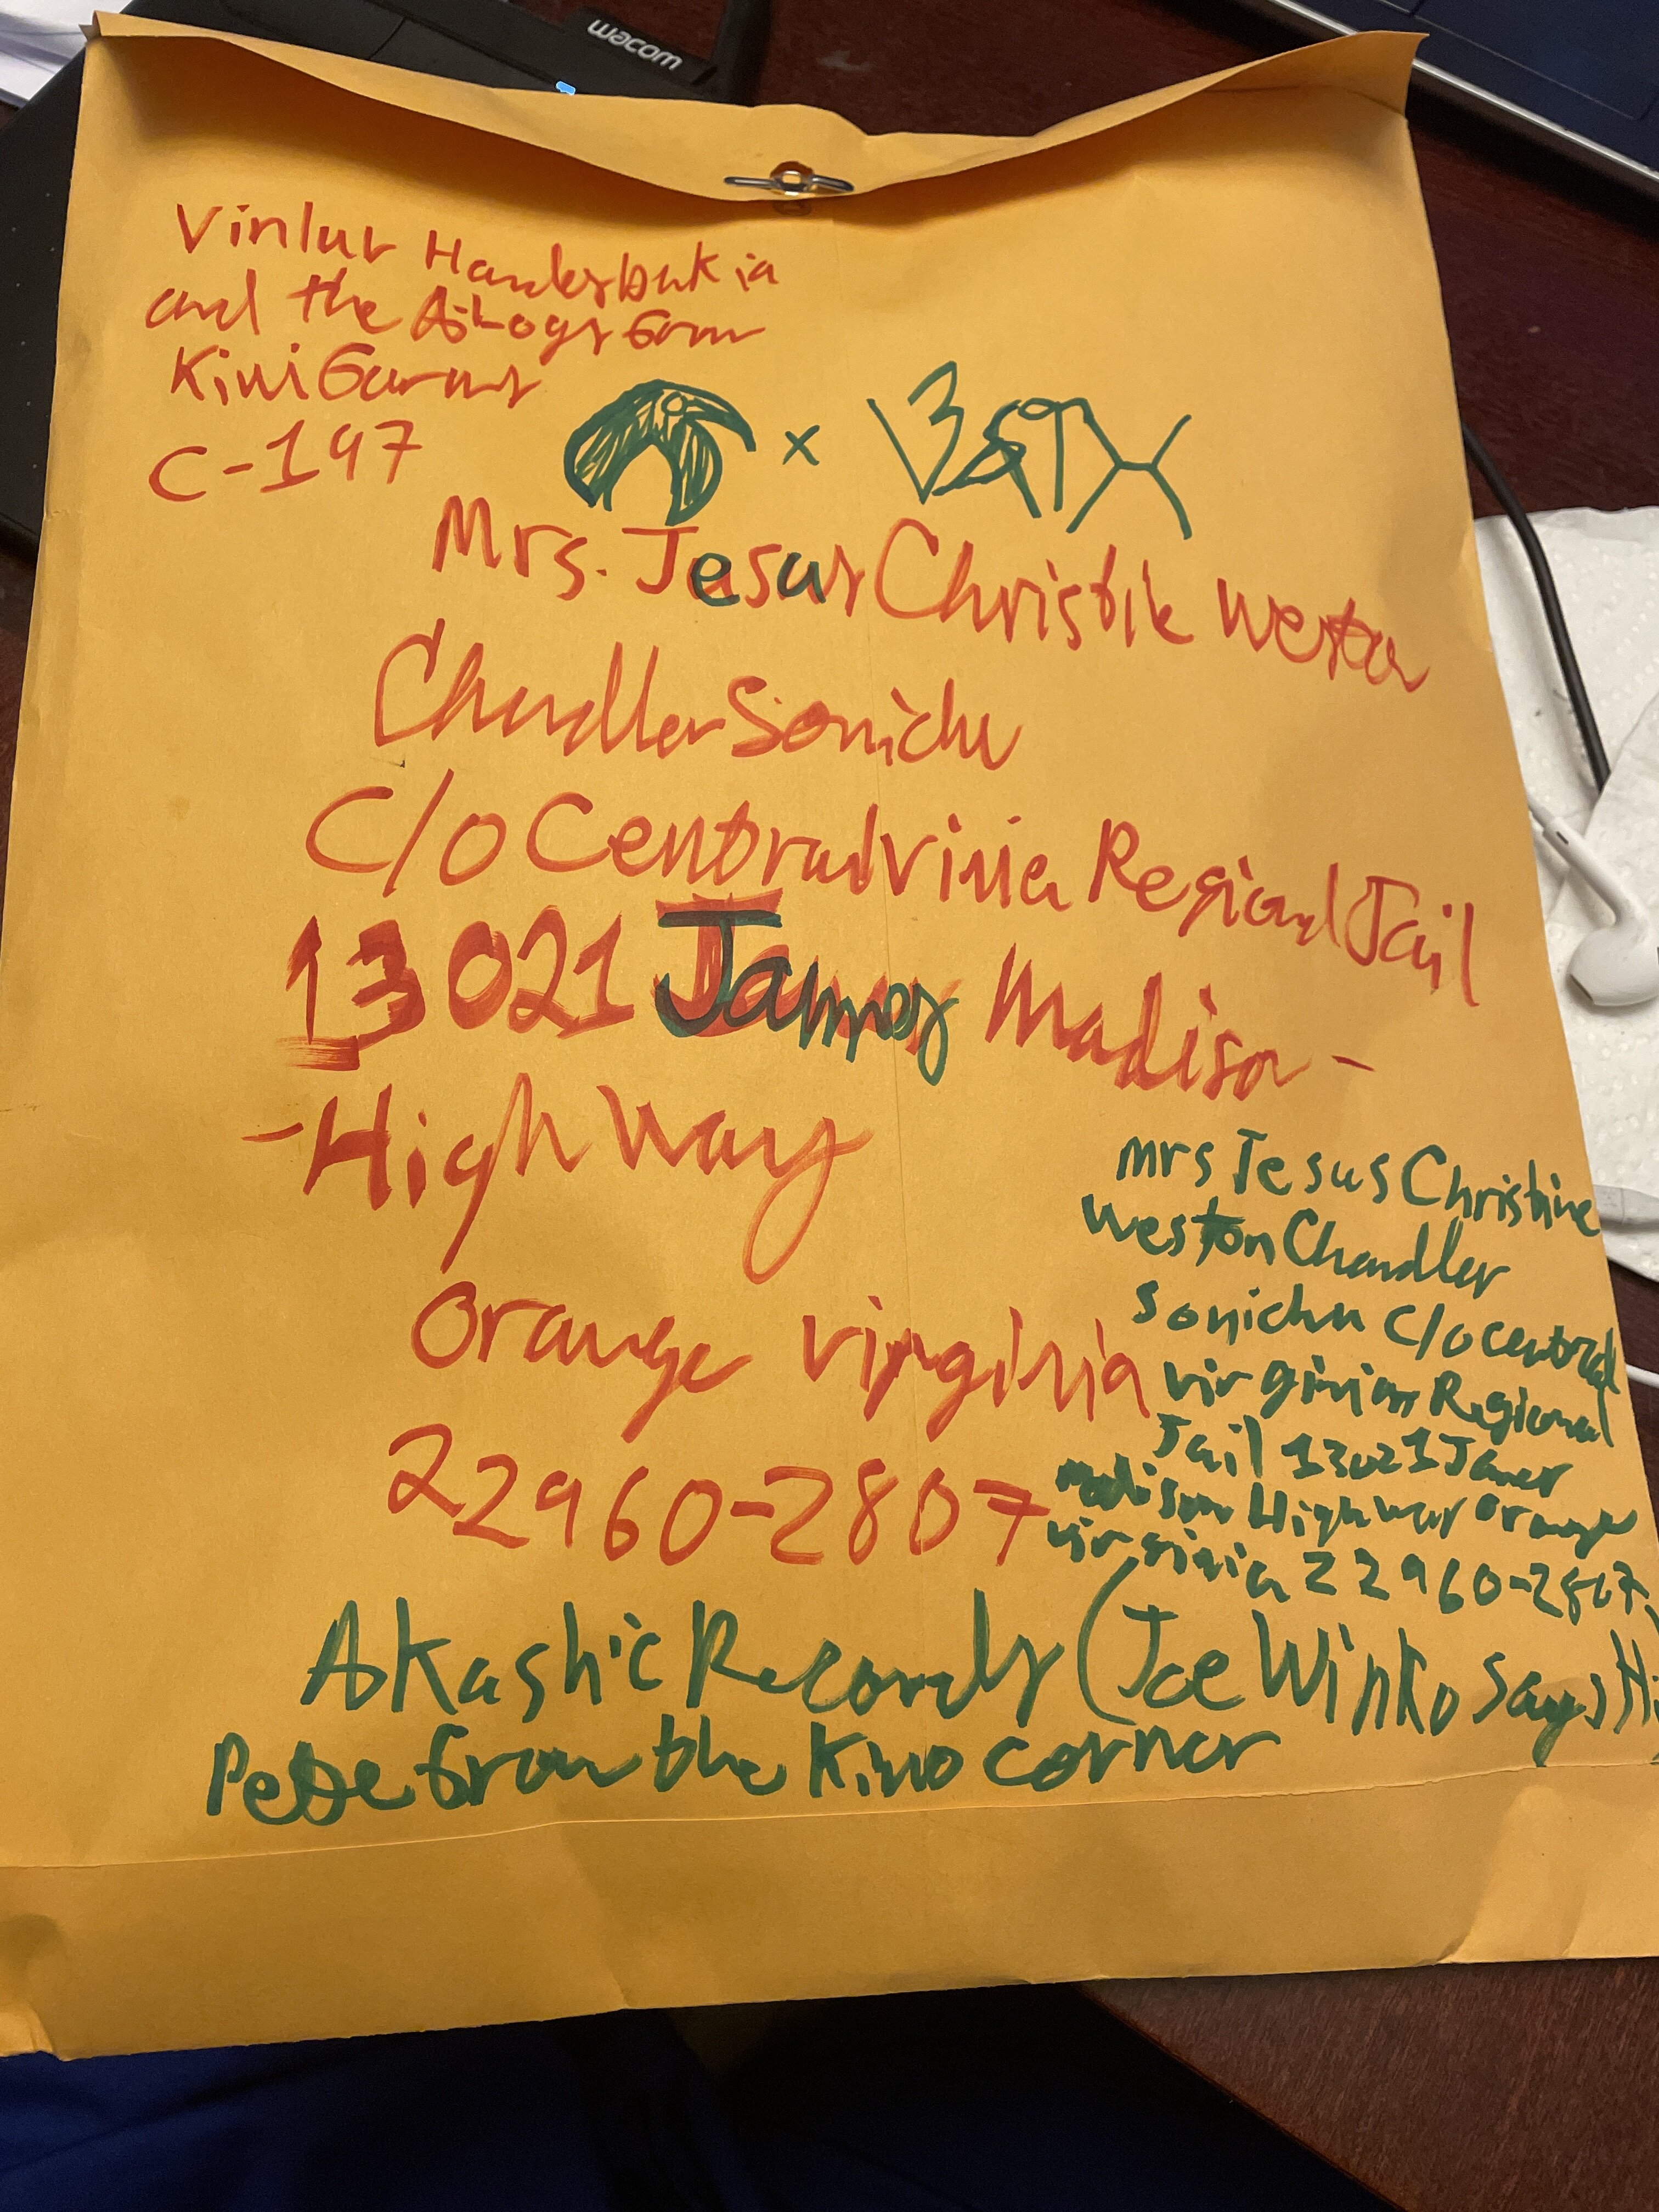 wacom
Vinlur
and the
Kiwi Farms
C-197
x
Mrs. Jesus Christik Weston
Chandler Sonichu
C/o Central Vinia Regional Jail
13021 James Madison -
- High Way
Orange virginia
22960-2807
mrs Jesus Christine
Weston Chandler
Sonichu C/o central
virginian Regional
Jail 13021 James
madison High way orange
virginia 22960-2807
Akashic Records (Joe Winko says Hi
Pete from the Kino corner